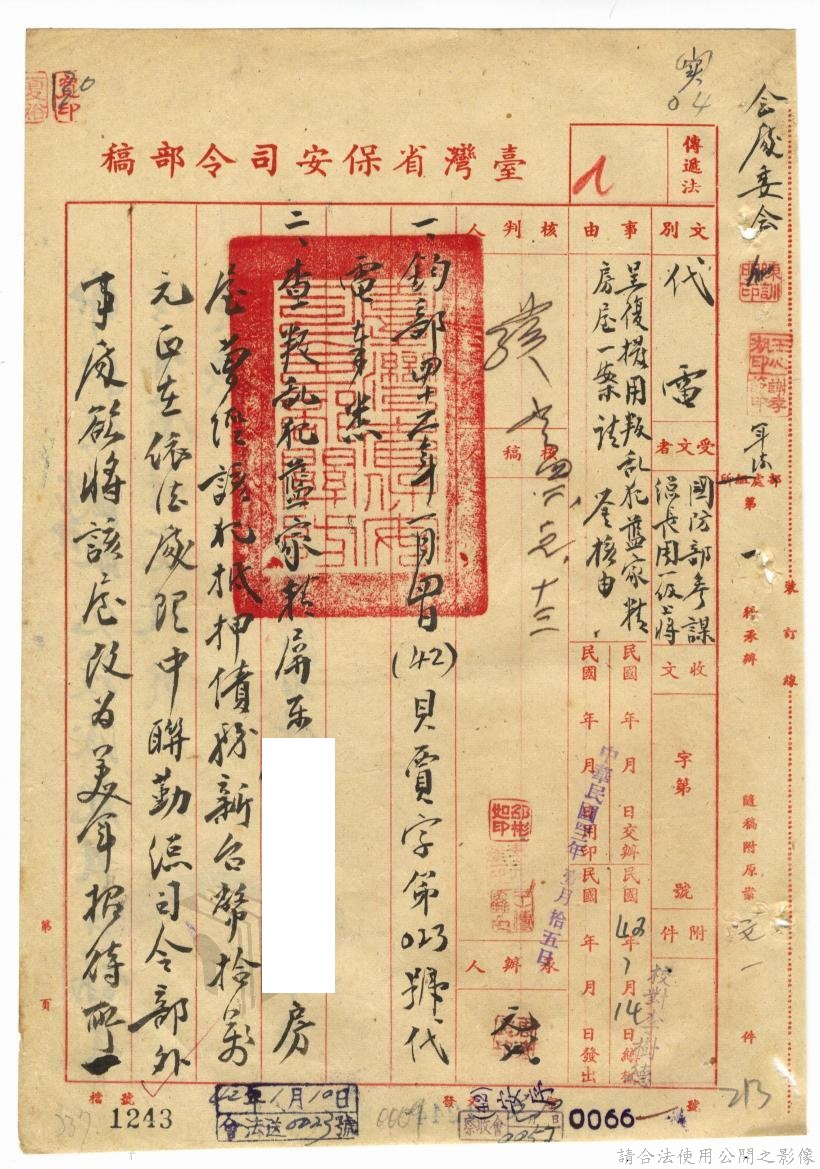 臺灣省保安司令部稿
傳遞法
會處委會
文別
代電
受文者
國防部參謀
總長周一級上將
事由
呈復擬用叛亂犯藍家精
房屋一案請 鑒核由
核判人
核稿人
承辦人
收文 字第 號
附件
民國 年 月 日交辦
民國 年 月 日用印
民國42年1月14日繕
民國 年 月 日發出
校對李樹德
第一科承辦
裝訂線
隨稿附原案 文一 件
一、鈞部四十二年一月四日(42)貝賈字第023號代
電奉悉
二、查叛亂犯藍家精屏東 房
屋曾經該犯抵押債務新台幣拾萬
元正在依法處理中聯勤總司令部外
事處欲將該屋改為美軍招待所一
第 頁
檔號
1243
42年1月10日
會法送0023號
0066
號
213
請合法使用公開之影像